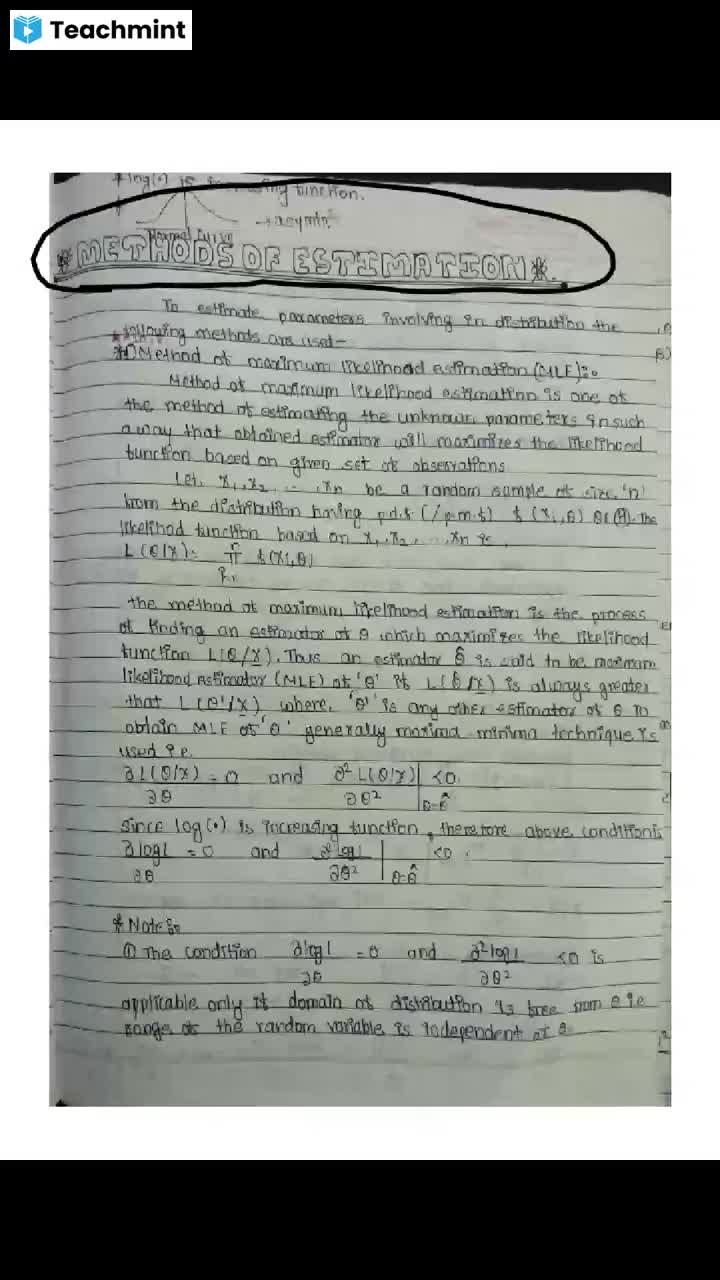 Teachmint
* log(•) is increasing function.
→ asympto
Normal Curve
* METHODS OF ESTIMATION *
To estimate parameters involving in distribution the
following methods are used-
*1) Method of maximum likelihood estimation (MLE):-
Method of maximum likelihood estimation is one of
the method of estimating the unknown parameters in such
a way that obtained estimator will maximizes the likelihood
function based on given set of observations
Let, x₁, x₂ ..., xn be a random sample of size 'n'
from the distribution having p.d.f (/p.m.f) f(xi, θ) θ∈Ⓗ. The
likelihod function based on x₁, x₂, ..., xn is,
L(θ/x) = n π i=1 f(xi, θ)
the method of maximum likelihood estimation is the process
of finding an estimator of θ which maximizes the likelihood
function L(θ/x). Thus an estimator θ̂ is said to be maximum
likelihood estimator (MLE) of 'θ' if L(θ̂/x) is always greater
that L(θ'/x) where, 'θ'' is any other estimator of θ To
obtain MLE of 'θ' generally maxima minima technique is
used i.e.
∂L(θ/x)/∂θ = 0 and ∂²L(θ/x)/∂θ² |θ=θ̂ <0
since log(•) is increasing function, therefore above condition is
∂logL/∂θ = 0 and ∂²logL/∂θ² |θ=θ̂ <0.
* Note:-
① The condition ∂logL/∂θ = 0 and ∂²logL/∂θ² <0 is
applicable only if domain of distribution is free from θ i.e
range of the random variable is independent of θ